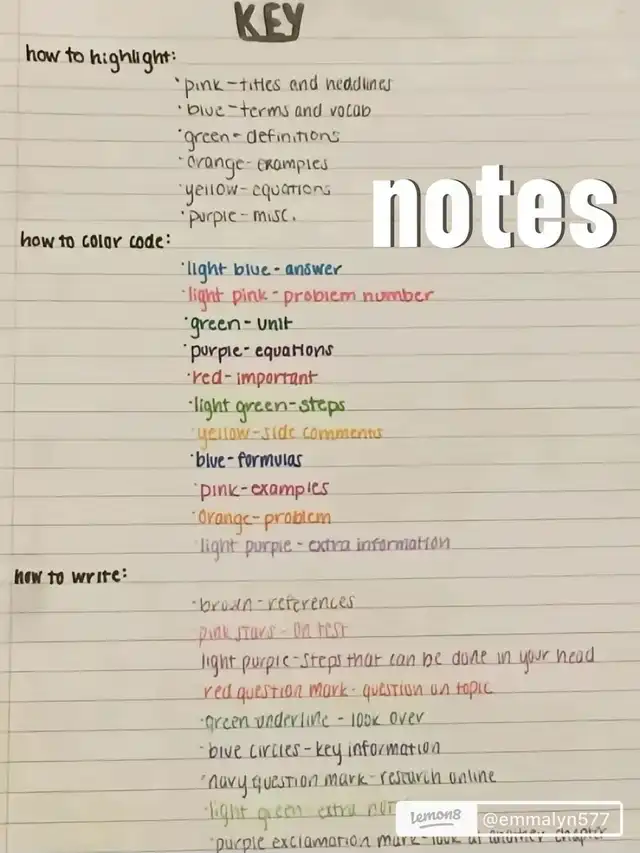 KEY
how to highlight:
·pink-titles and headlines
·blue-terms and vocab
·green-definitions
·orange-examples
·yellow-equations
·purple-misc.
notes
how to color code:
·light blue-answer
·light pink-problem number
·green-unit
·purple-equations
·red-important
·light green-steps
·yellow-side comments
·blue-formulas
·pink-examples
·orange-problem
·light purple-extra information
how to write:
·brown-references
pink stars-on test
light purple-steps that can be done in your head
red question mark-question on topic
·green underline-look over
·blue circles-key information
·navy question mark-research online
·light green extra
lemon8 @emmalyn577
·purple exclamation mark-look at another chapter